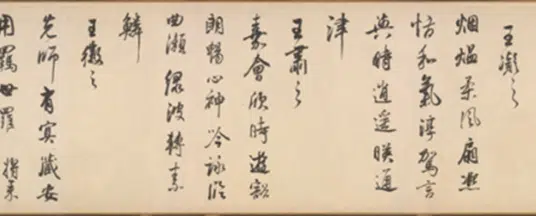 王凝之
烟熅柔風扇熙
怡和氣淳駕言
興時逍遥暎通
津
王肅之
嘉會欣時遊豁
朗暢心神吟詠臨
曲瀨渌波轉素
鱗
王徽之
先師有冥藏安
用羈世羅